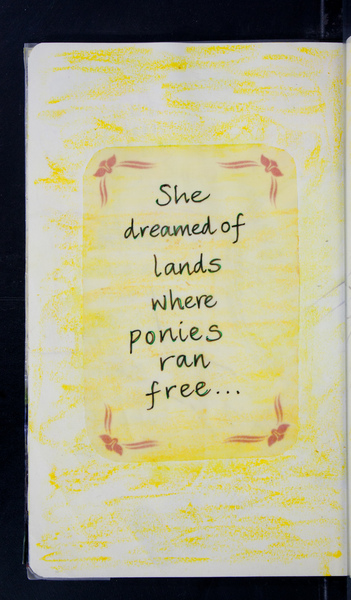 She
dreamed of
lands
where
ponies
ran
free...